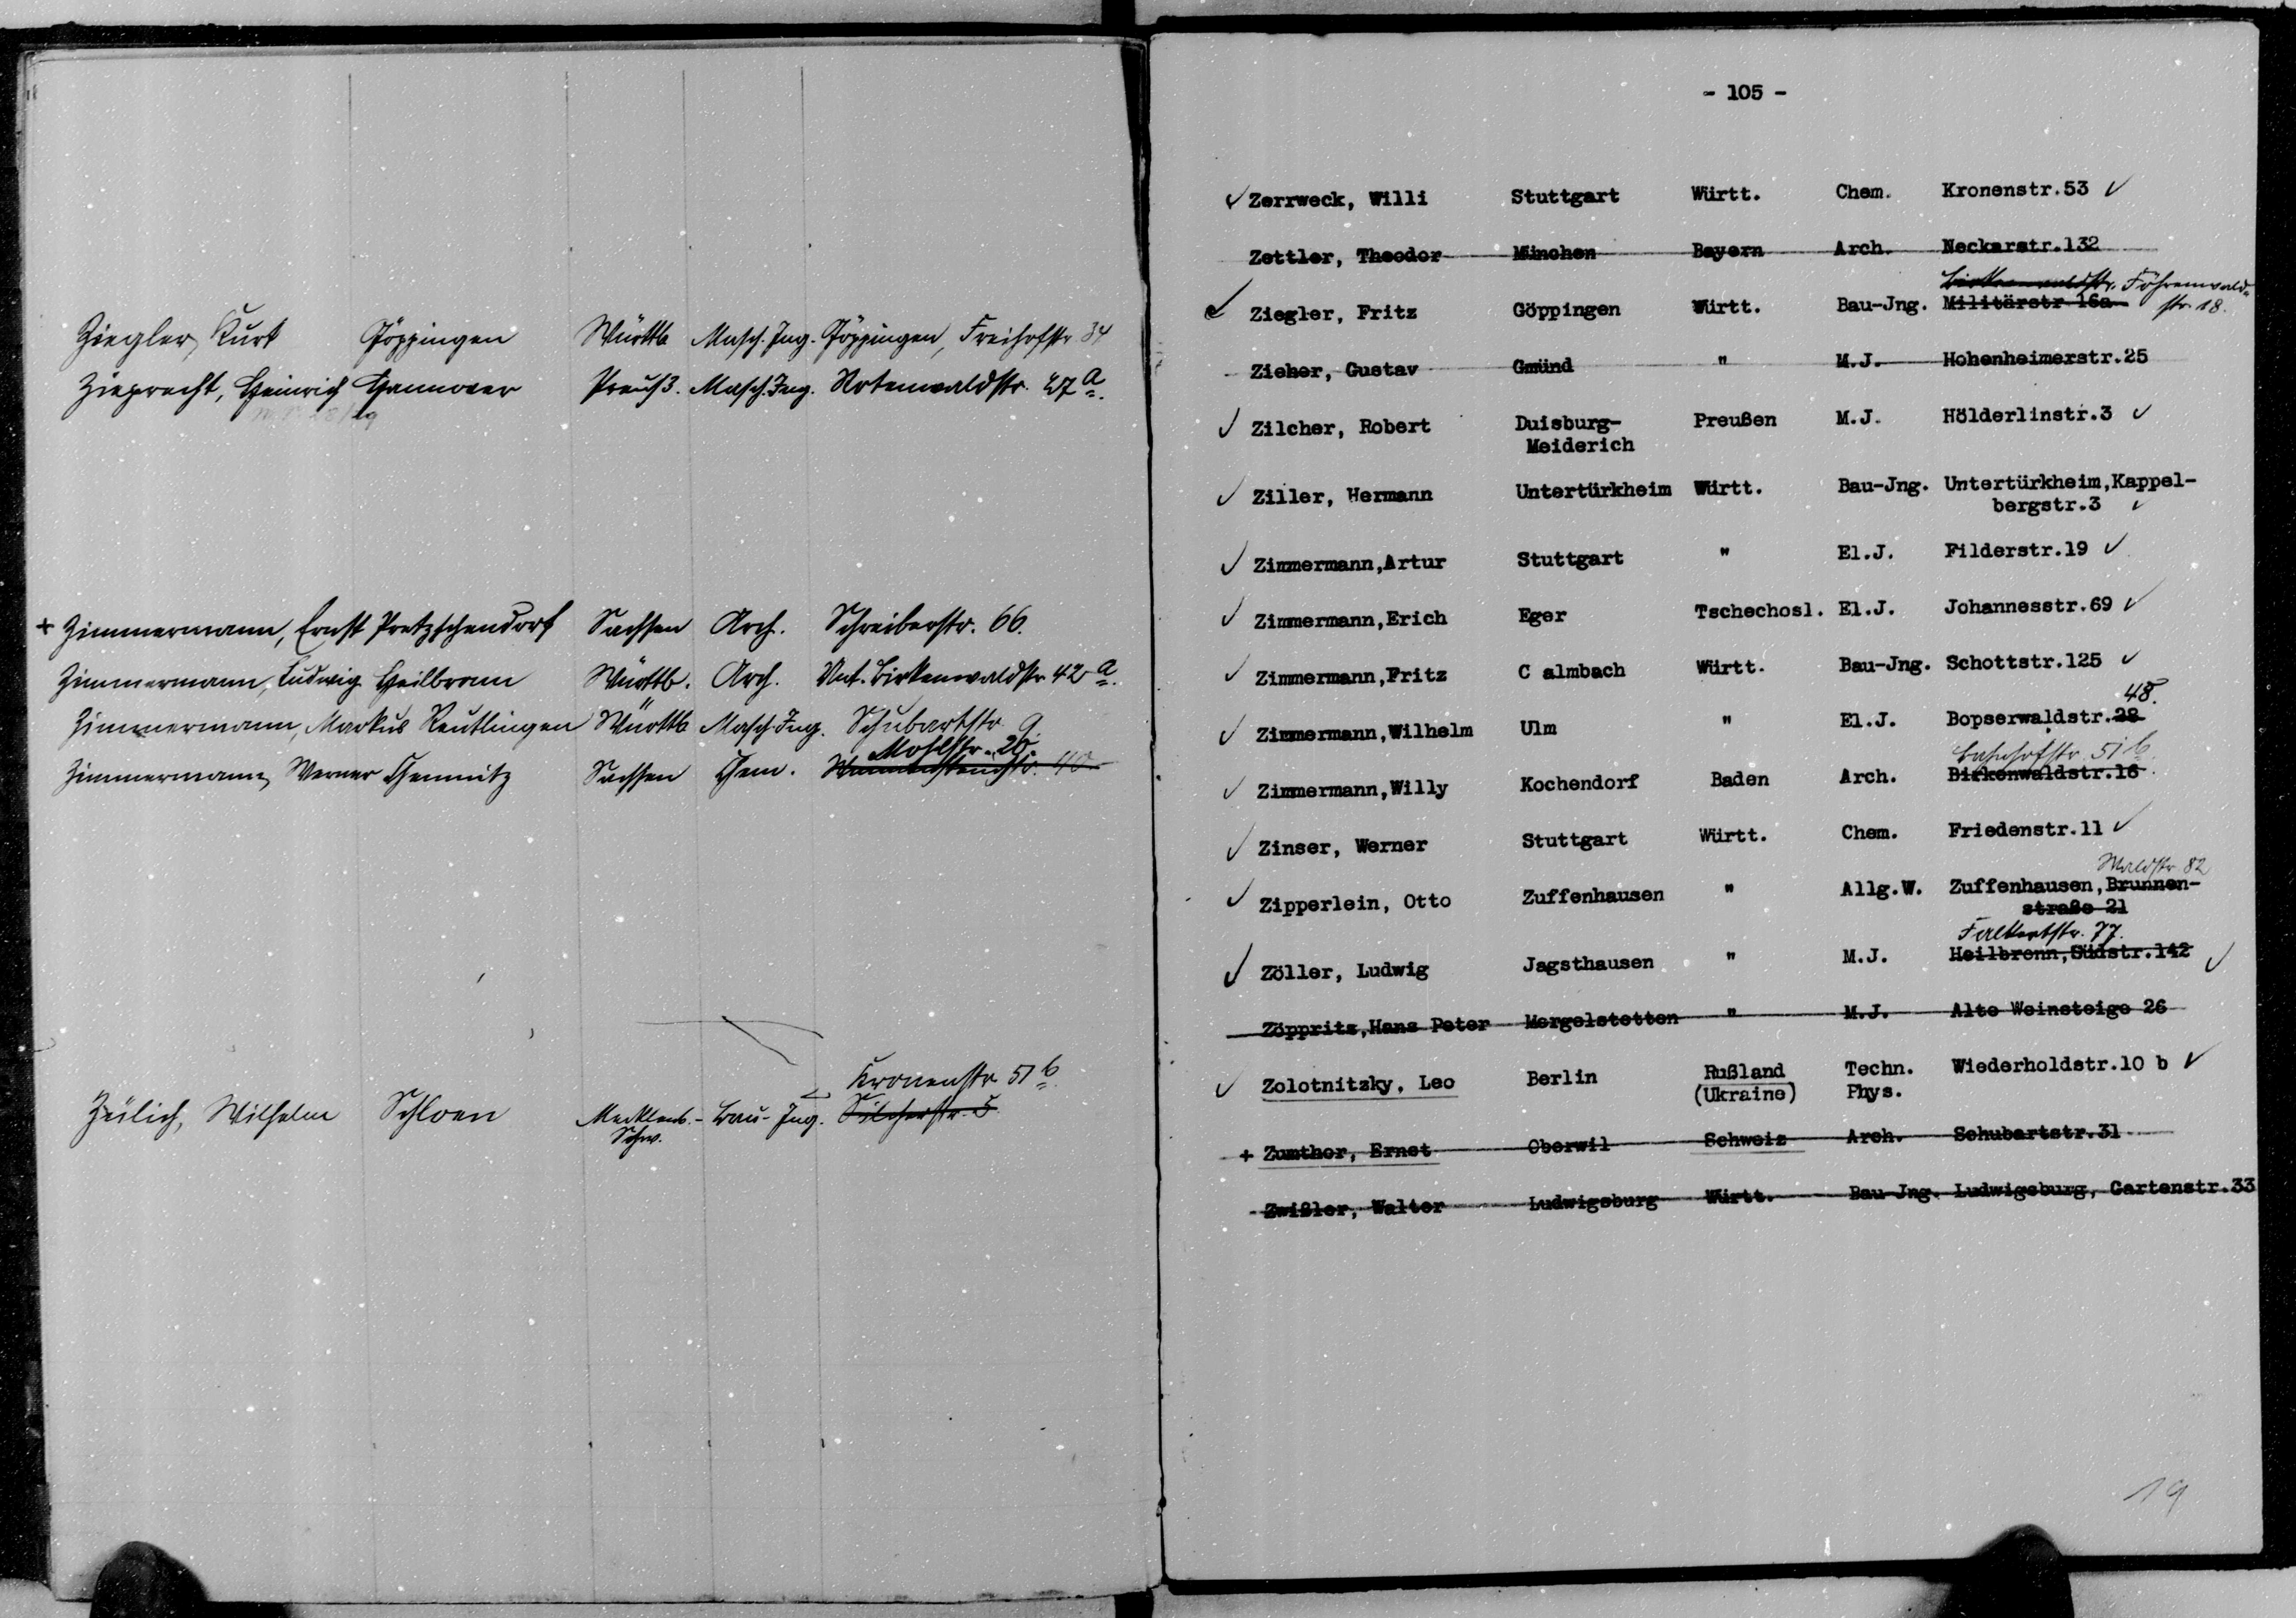 Ziegler, Kurt Göppingen Württb Masch. Ing. Göppingen, Freihofstr. 34
Zieprecht, Heinrich Hannover Preuß. Masch. Ing. Rotenwaldstr. 47 a.
+ Zimmermann, Ernst Pretzschendorf Sachsen Arch. Schreiberstr. 66.
Zimmermann, Ludwig Heilbronn Württb. Arch. Unt. Birkenwaldstr. 42 a.
Zimmermann, Markus Reutlingen Württb Masch. Ing. Schubartstr. 9.
Mohlstr. 20.
Zimmermann, Werner Chemnitz Sachsen Chem. 40
Kronenstr. 51 b.
Zeilich, Wilhelm Schloen Mecklenb.- Bau-Ing. Silcherstr. 5
Schw.
- 105 -
✓ Zerrweck, Willi Stuttgart Württ. Chem. Kronenstr.53 ✓
Zettler, Theodor München Bayern Arch. Neckarstr.132
Birkenwaldstr. Föhrenwald-
✓ Ziegler, Fritz Göppingen Württ. Bau-Jng. Militärstr 16a str. 18.
Zieher, Gustav Gmünd " M.J. Hohenheimerstr.25
✓ Zilcher, Robert Duisburg- Preußen M.J. Hölderlinstr.3 ✓
Meiderich
✓ Ziller, Hermann Untertürkheim Württ. Bau-Jng. Untertürkheim,Kappel-
bergstr.3 ✓
✓ Zimmermann,Artur Stuttgart " El.J. Filderstr.19 ✓
✓ Zimmermann,Erich Eger Tschechosl. El.J. Johannesstr.69 ✓
✓ Zimmermann,Fritz C almbach Württ. Bau-Jng. Schottstr.125 ✓
48.
✓ Zimmermann,Wilhelm Ulm " El.J. Bopserwaldstr.28
Bahnhofstr. 51 b.
✓ Zimmermann,Willy Kochendorf Baden Arch. Birkenwaldstr.16
✓ Zinser, Werner Stuttgart Württ. Chem. Friedenstr.11 ✓
Waldstr. 82
✓ Zipperlein, Otto Zuffenhausen " Allg.W. Zuffenhausen,Brunnen-
straße 21
Falkertstr. 77.
✓ Zöller, Ludwig Jagsthausen " M.J. Heilbronn,Südstr.142 ✓
Zöppritz,Hans Peter Mergelstetten " M.J. Alte Weinsteige 26
✓ Zolotnitzky, Leo Berlin Rußland Techn. Wiederholdstr.10 b ✓
(Ukraine) Phys.
+ Zumthor, Ernst Oberwil Schweiz Arch. Schubartstr.31
Zwißler, Walter Ludwigsburg Württ. Bau-Jng. Ludwigsburg, Gartenstr.33
19